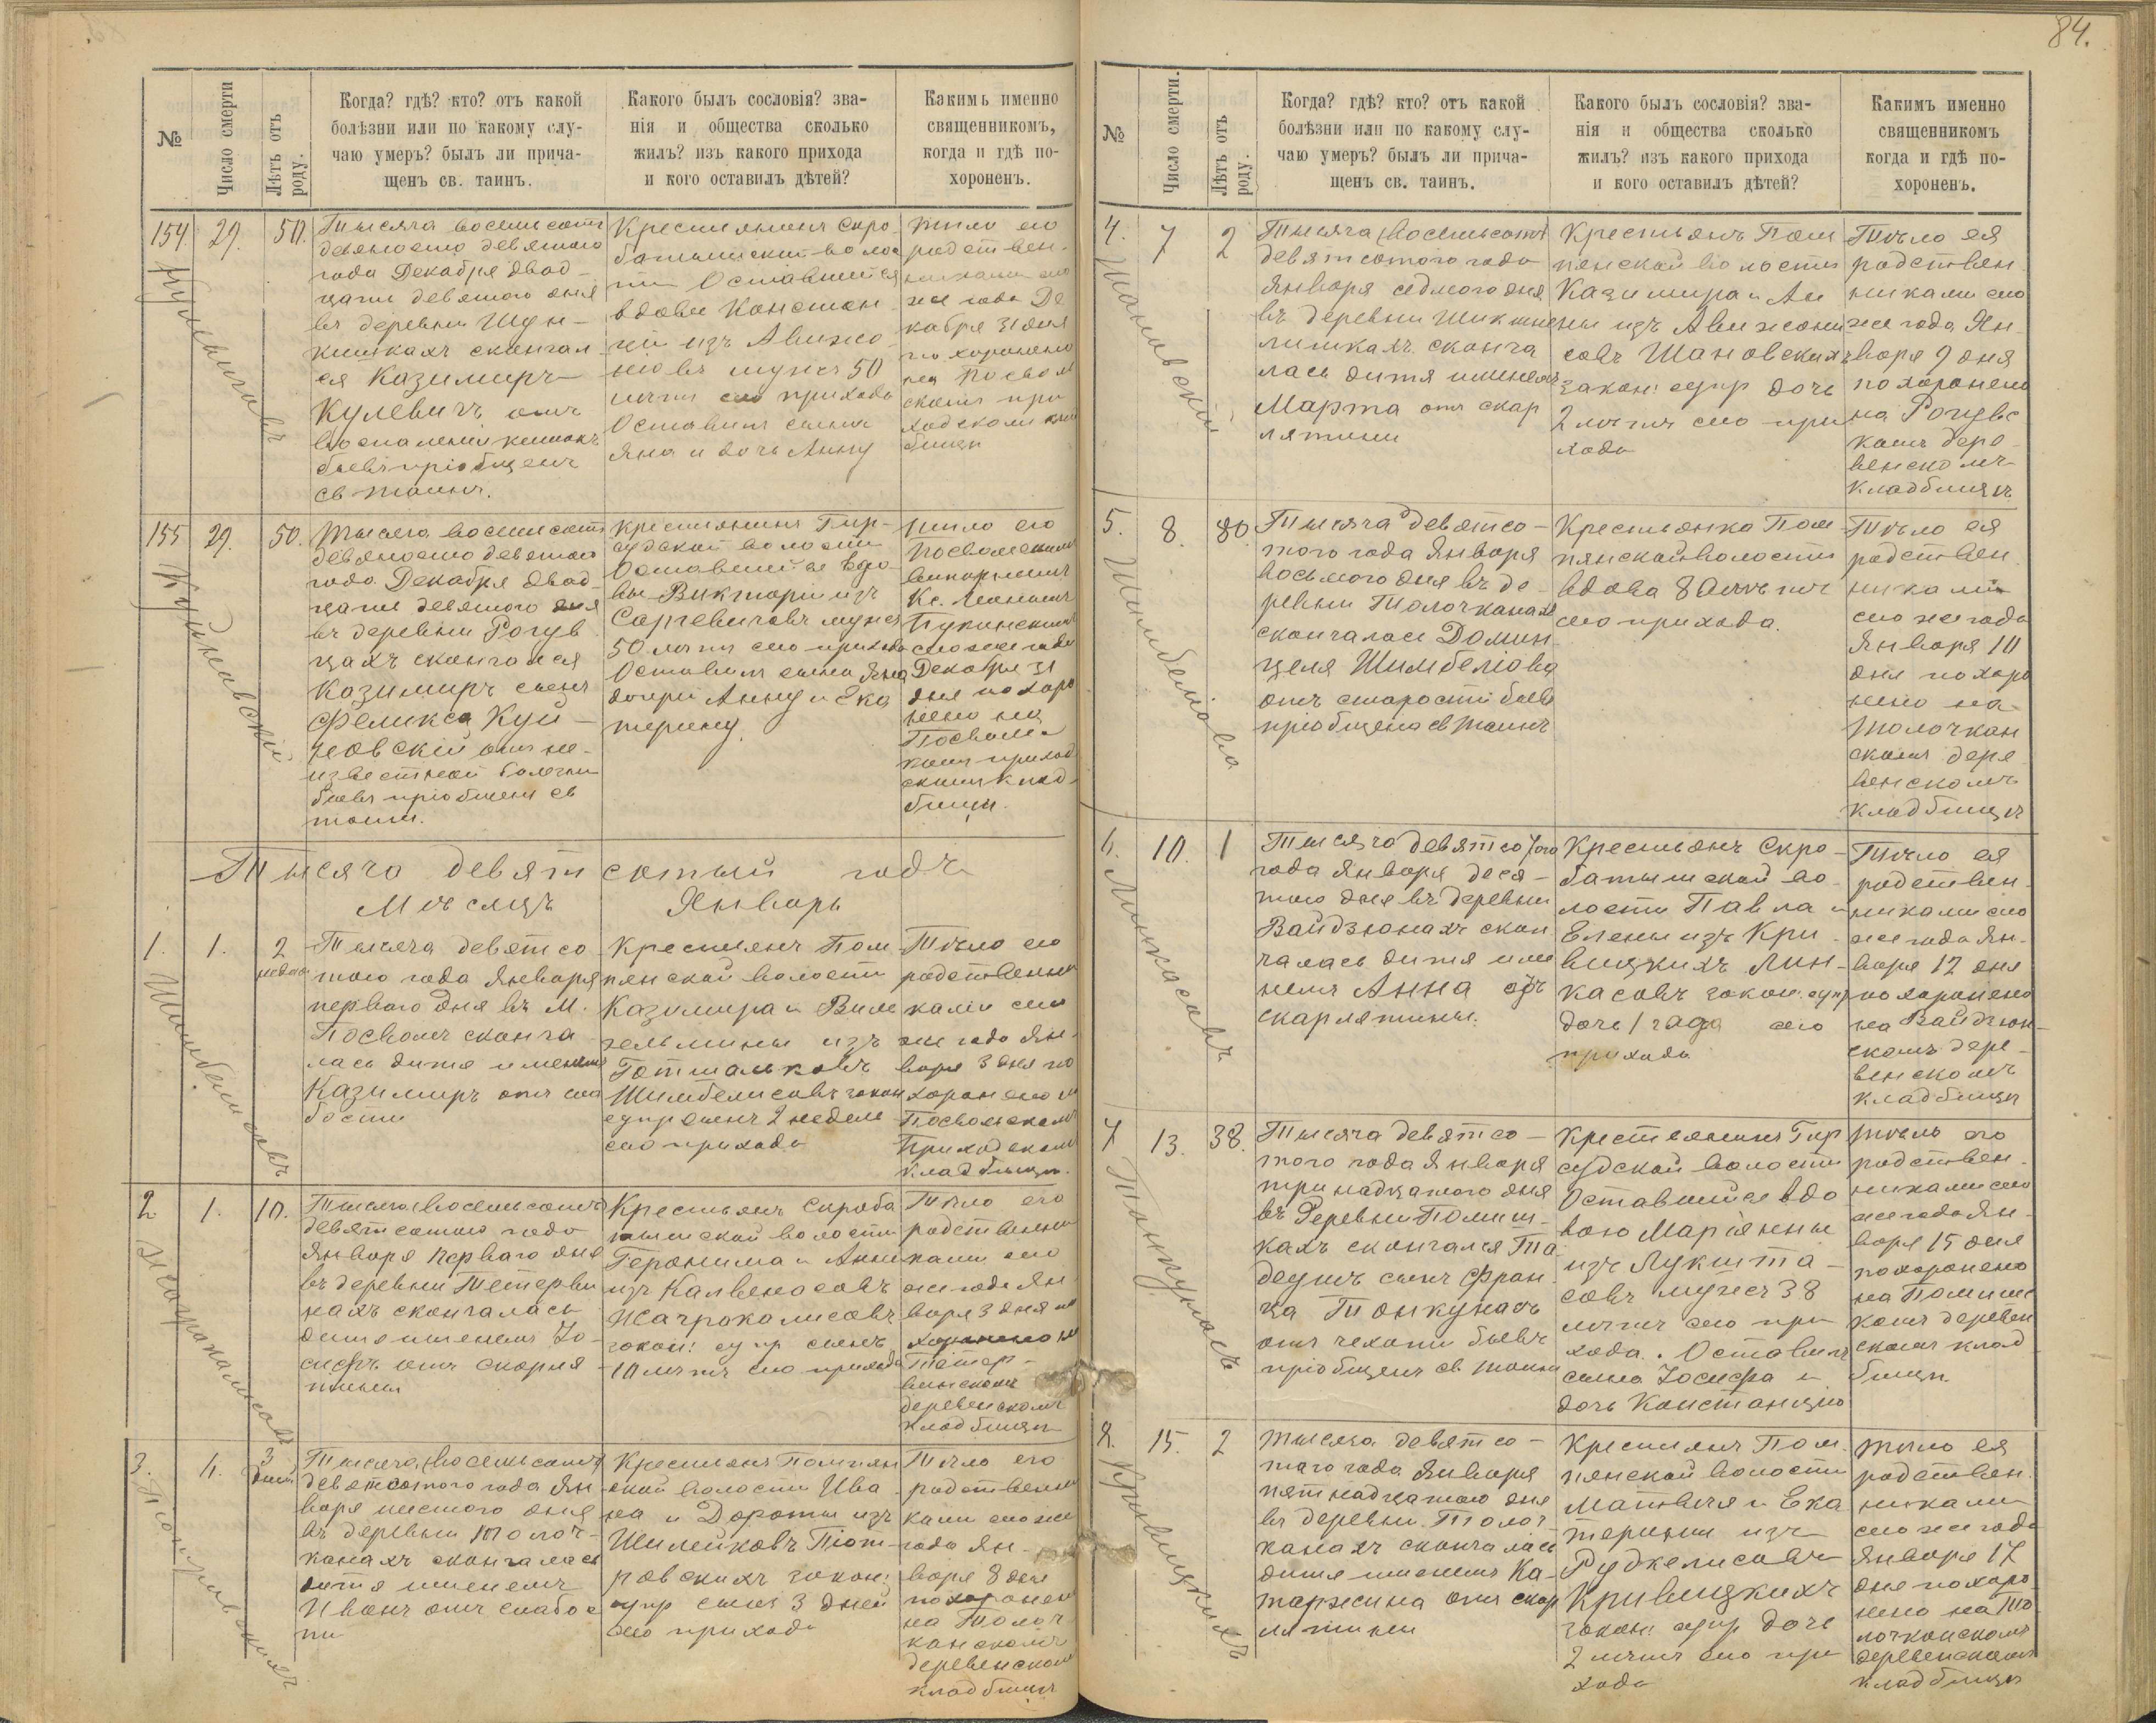 84.
№
Число смерти
Лѣтъ отъ
роду.
Когда? гдѣ? кто? отъ какой
болѣзни или по какому слу-
чаю умеръ? былъ ли прича-
щенъ св. таинъ.
Какого былъ сословія? зва-
нія и общества сколько
жилъ? изъ какого прихода
и кого оставилъ дѣтей?
Какимъ именно
священникомъ,
когда и гдѣ по-
хороненъ.
154. 29. 50.
Тысяча восемьсотъ
девяносто девятаго
года Декабря двад-
цати девятаго дня
въ деревни
скончал
ся Казимиръ
Кулевичъ отъ
воспаленій кишокъ
бывъ пріобщенъ
св таинъ.
Крестьянинъ Скро
батишской волос
ти Оставшійся
вдовы Констан
ціи изъ Авижо
нювъ мужъ 50
лѣтъ сего прихода
Оставилъ сына
Яна и дочь Анну
тѣло его
родствен-
никами сего
же года Де
кабря 31 дня
похоронено
на Посволь
скомъ при
ходскомъ клад
бищѣ
155 29. 50.
Тысяча восемьсотъ
девяносто девятаго
года Декабря двад-
цати девятаго дня
въ деревни Рогув
цахъ скончался
Казимиръ сынъ
Феликса Куй-
новскій отъ не-
известной болезни
бывъ пріобщенъ св
таин.
Куйновскій
крестьянинъ Гир-
судской волости
Оставшійся вдо
вы Викторіи изъ
Саргевичовъ мужъ
50 лѣтъ сего прихода
Оставилъ сына Яна
дочери Анну и Ека
терину.
тѣло его
Посвольскимъ
викарнымъ
Кс.
сего же года
Декабря 31
дня похоро
нено на
Посволь
комъ приход
скомъ клад
бищи.
Тысяча девятсотый годъ
Мѣсяцъ Январь
1. 1. 2
недели
Тысяча девятсо
таго года Января
перваго дня въ М.
Посволь сконча
лась дитя именемъ
Казимиръ отъ сла
бости
Крестьянъ Пом
пянской волости
Казимира и Виль
гельмины изъ
Готшальковъ
Шимбелисовъ закон
супр сынъ 2 недели
сего прихода
Тѣло его
родственни
ками сего
же года Ян-
варя 3 дня по
хоронено на
Посвольскомъ
Приходскомъ
кладбищѣ.
2 1. 10.
Тысяча (восемьсотъ)
девятсотаго года
Января перваго дня
въ деревни Тетерви
нахъ скончалась
дитя именемъ Іо-
сифъ отъ скарля
тины
Крестьянъ Скроба
тишской волости
Геронима и Анны
изъ Калвенасовъ
закон: супр сынъ
10 лѣтъ сего прихода
Тѣло его
родственни
ками сего
же года Ян
варя 3 дня по
хоронено на
Тетер-
винскомъ
деревенскомъ
кладбищѣ
3. 3
дней
Тысяча (восемьсотъ)
девятсотого года Ян
варя шестого дня
въ деревни Толоч-
канахъ скончалась
дитя именемъ
Иванъ отъ слабос
ти
Крестьянъ Помпян
ской волости Ива
на и Дороты изъ
Шилейковъ Піот-
ровскихъ закон:
супр сынъ 3 дней
сего прихода
Тѣло его
родственни
ками сего же
года Ян-
варя 8 дня
похоронен
на Толоч
канскомъ
деревенском
кладбищѣ
№
Число смерти.
Лѣтъ отъ
роду.
Когда? гдѣ? кто? отъ какой
болѣзни или по какому слу-
чаю умеръ? былъ ли прича-
щенъ св. таинъ.
Какого былъ сословія? зва-
нія и общества сколько
жилъ? изъ какого прихода
и кого оставилъ дѣтей?
Какимъ именно
священникомъ
когда и гдѣ по-
хороненъ.
4. 7 2
Шановскій
Тысяча (восемьсотъ)
девятсотого года
Января седмого дня
въ деревни
сконча
лась дитя именемъ
Марта отъ скар
лятини
Крестьянъ Пом
пянской волости
Казимира и Ан
ны изъ Авижони
совъ Шановскихъ
закон: супр дочь
2 лѣтъ сего при
хода
Тѣло ея
родствен
никами сего
же года Ян-
варя 9 дня
похоронено
на Рогувс
комъ дере-
венскомъ
кладбищѣ
5. 8. 80.
Тысяча девятсо-
того года Января
восьмого дня въ де-
ревни Толочканахъ
скончалась Домин-
целя Шимбелiова
отъ старости бывъ
пріобщена св таинъ
Крестьянка Пом-
пянской волости
вдова 80 лѣтъ
сего прихода.
Тѣло ея
родствен
никами
сего же года
Января 10
дня похоро
нено на
Толочкан
скомъ дере
венскомъ
кладбищѣ
6. 10. 1
Тысяча девятсотого
года Января деся-
того дня въ деревни
Вайдзюнахъ скон
чалась дитя име
немъ Анна отъ
скарлятины.
Крестьянъ Скро-
батишской во-
лости Павла и
Елены изъ Кри
вицкихъ Лин-
касовъ закон. супр
дочь 1 года сего
прихода
Тѣло ея
родствен-
никами сего
же года Ян-
варя 12 дня
похоронено
на Вайдзюн-
скомъ дере-
венскомъ
кладбищѣ
7 13. 38.
Тысяча девятсо-
того года Января
тринадцатого дня
въ деревни Помиш-
кахъ скончался Та
деушъ сынъ Фран
ца Тонкунасъ
отъ чехоти бывъ
пріобщенъ св таинъ
Крестьянинъ Гир
судской волости
Оставшійся вдо
вою Маріянны
изъ Лукшта-
совъ мужъ 38
лѣтъ сего при
хода. Оставилъ
сына Іосифа и
дочь Констанцію
тѣло его
родствен-
никами сего
же года Ян-
варя 15 дня
похоронено
на Помишс
комъ деревен
скомъ клад
бищѣ
8. 15. 2
Тысяча девятсо-
таго года Января
пятнадцатого дня
въ деревни Толоч
канахъ скончалась
дитя именемъ Ка-
таржина отъ скар
лятины
Кривицкихъ
Крестьянъ Пом.
пянской волости
Матвѣя и Ека
терины изъ
Рудкелисовъ
Кривицкихъ
закон: супр дочь
2 лѣтъ сего при
хода
тѣло ея
родствен.
никами
сего же года
Января 17
дня похоро
нено на То
лочканскомъ
деревенскомъ
кладбищѣ